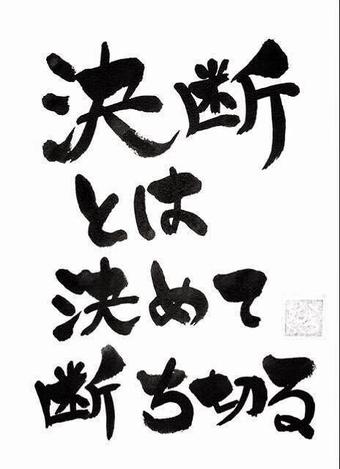 決断
とは
決めて
断ち切る